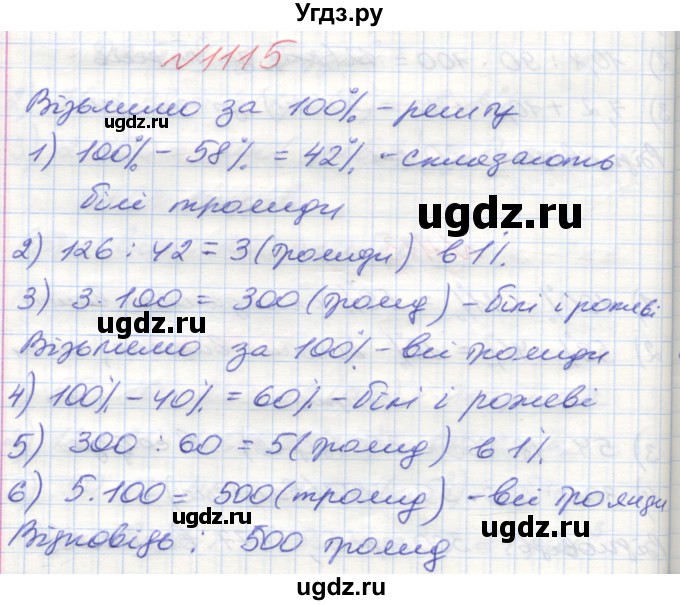 Угдз.ру
№1115
Візьмемо за 100% - решту
ugdz.ru
1) 100% - 58% = 42% - складають
білі троянди
ugdz.ru
ugdz.ru
2) 126 : 42 = 3 (троянди) в 1%
3) 3 · 100 = 300 (троянд) - білі і рожеві
ugdz.ru
Візьмемо за 100% - всі троянди
4) 100% - 40% = 60% - білі і рожеві
5) 300 : 60 = 5 (троянд) в 1%
ugdz.ru
ugdz.ru
6) 5 · 100 = 500 (троянд) - всі троянди
ugdz.ru
Відповідь : 500 троянд
ugdz.ru